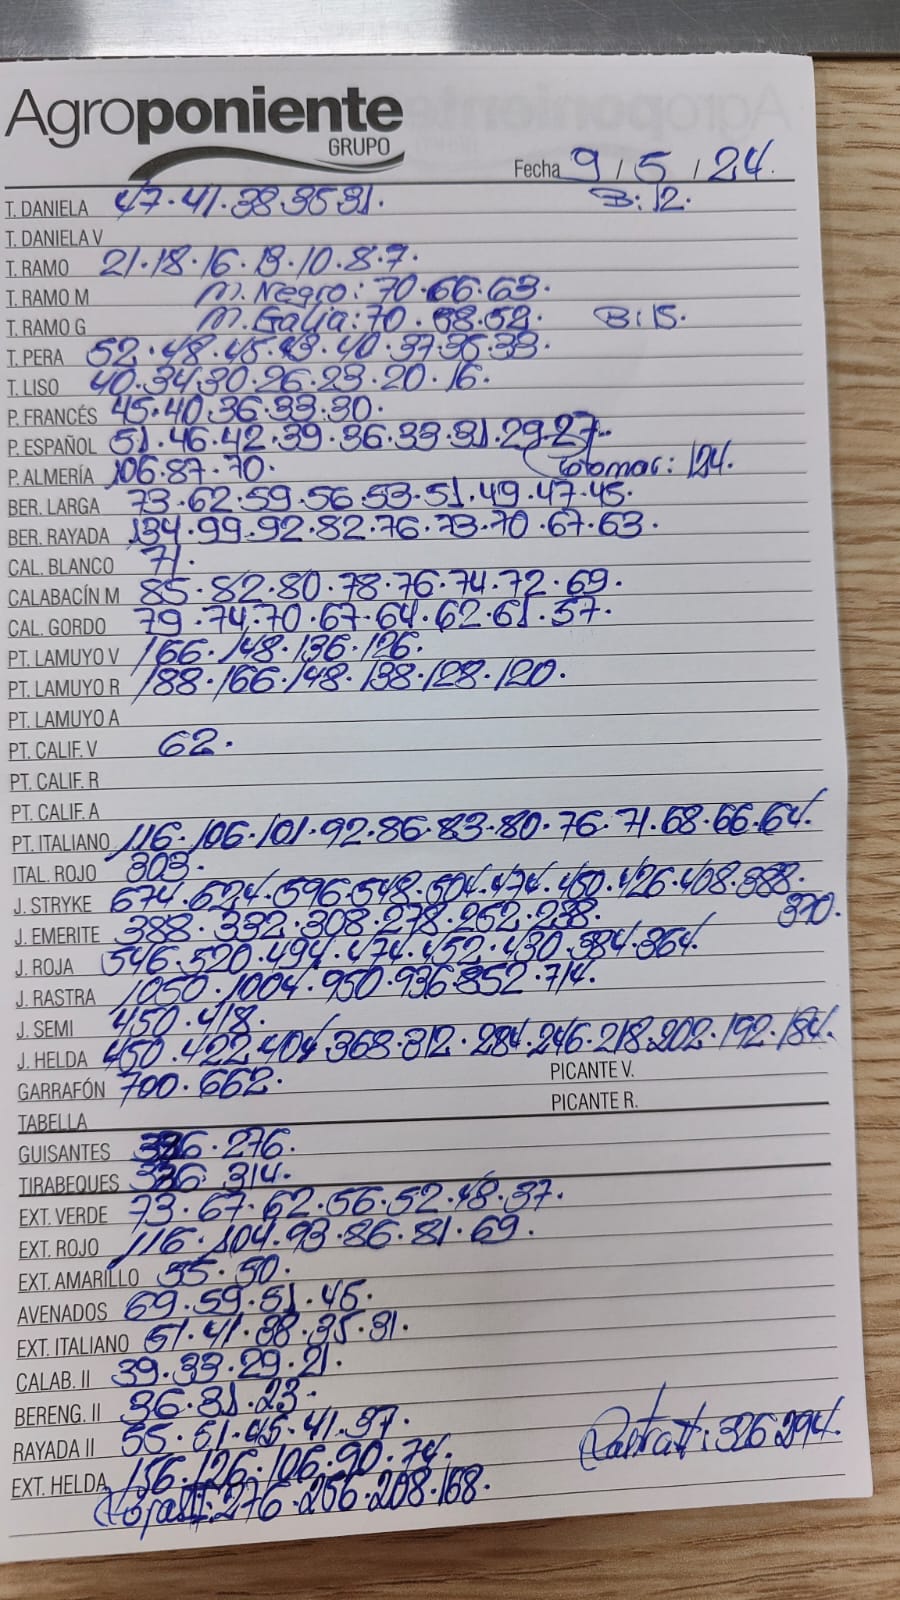 Agroponiente
GRUPO
Fecha 9 / 5 / 24.
T. DANIELA 47.41.38.35.31. B:12.
T. DANIELA V
T. RAMO 21.18.16.13.10.8.7.
T. RAMO M M. Negro: 70.66.63.
T. RAMO G M. Galia: 70.58.52. B:15.
T. PERA 52.48.45.43.40.37.35.33.
T. LISO 40.34.30.26.23.20.16.
P. FRANCÉS 45.40.36.33.30.
P. ESPAÑOL 51.46.42.39.36.33.31.29.27.
P. ALMERÍA 106.87.70. 124.
BER. LARGA 73.62.59.56.53.51.49.47.45.
BER. RAYADA 134.99.92.82.76.73.70.67.63.
CAL. BLANCO 71.
CALABACÍN M 85.82.80.78.76.74.72.69.
CAL. GORDO 79.74.70.67.64.62.61.57.
PT. LAMUYO V 166.148.136.126.
PT. LAMUYO R 188.166.148.138.128.120.
PT. LAMUYO A
PT. CALIF. V 62.
PT. CALIF. R
PT. CALIF. A
PT. ITALIANO 116.106.101.92.86.83.80.76.71.68.66.64.
ITAL. ROJO 303.
J. STRYKE 674.624.596.548.504.474.450.426.408.388.
370.
J. EMERITE 388.332.308.278.252.238.
J. ROJA 546.520.494.474.452.430.384.364.
J. RASTRA 1050.1004.950.936.852.714.
J. SEMI 450.418.
J. HELDA 450.422.404.368.312.284.246.218.202.192.184.
GARRAFÓN 700.662. PICANTE V.
TABELLA PICANTE R.
GUISANTES 276.
TIRABEQUES 314.
EXT. VERDE 73.67.62.56.52.48.37.
EXT. ROJO 116.104.93.86.81.69.
EXT. AMARILLO 55.50.
AVENADOS 69.59.51.45.
EXT. ITALIANO 51.41.38.35.31.
CALAB. II 39.33.29.21.
BERENG. II 36.31.23.
RAYADA II 55.51.45.41.37. Rastra II: 326 294.
EXT. HELDA 156.126.106.90.74.
Roja II: 276.256.208.168.